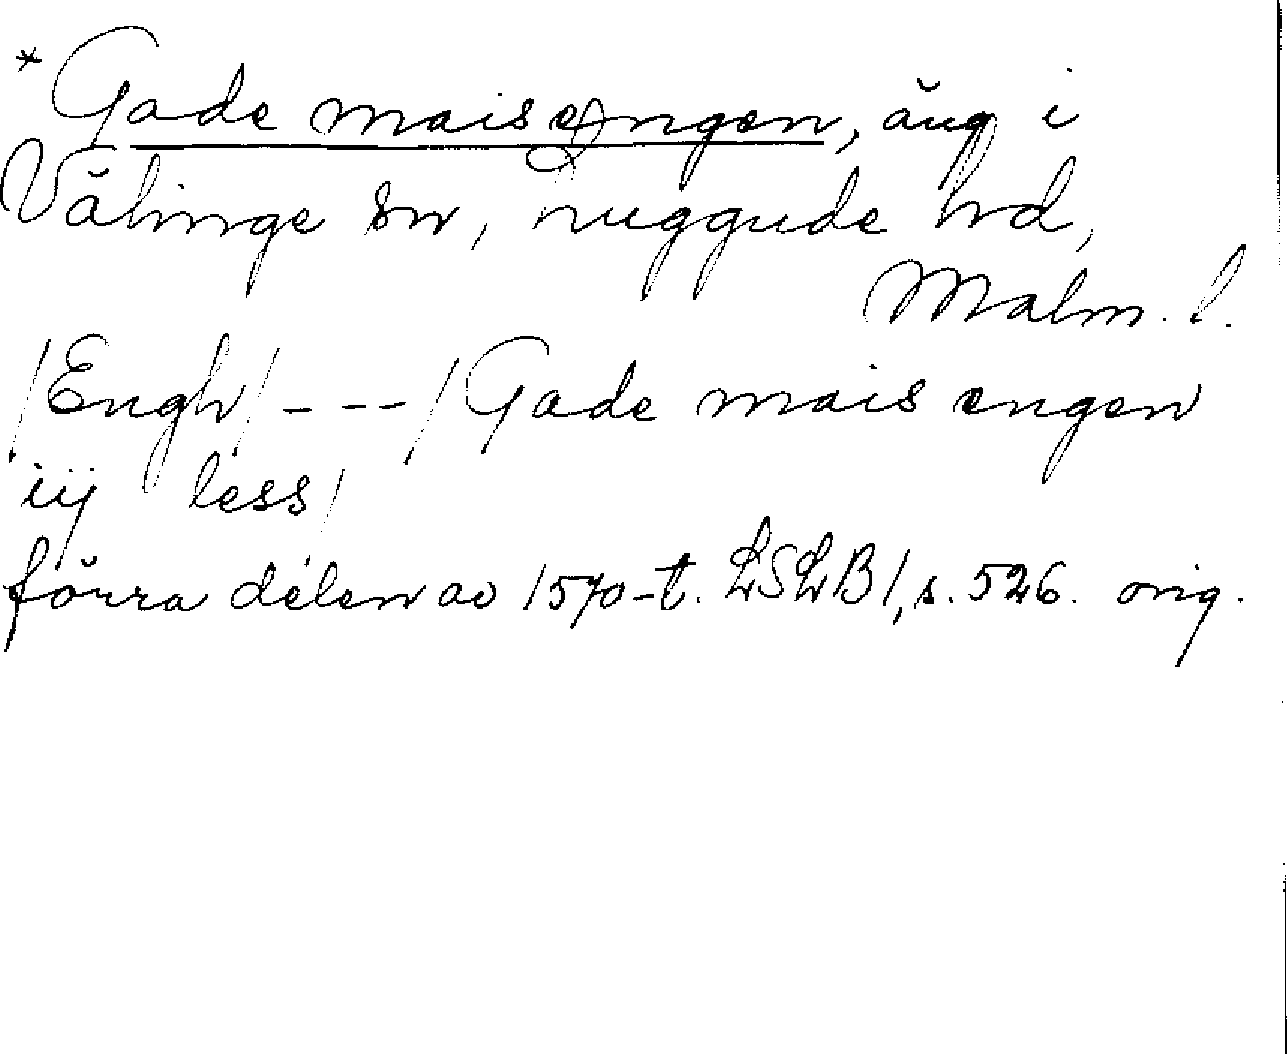 *Gade maisengen, äng i
Välinge sn, Luggude hd,
Malm. l.
/Engh/ --- /Gade mais engen
iij less/
förra delen av 1570-t. LSLB 1, s. 526. orig.